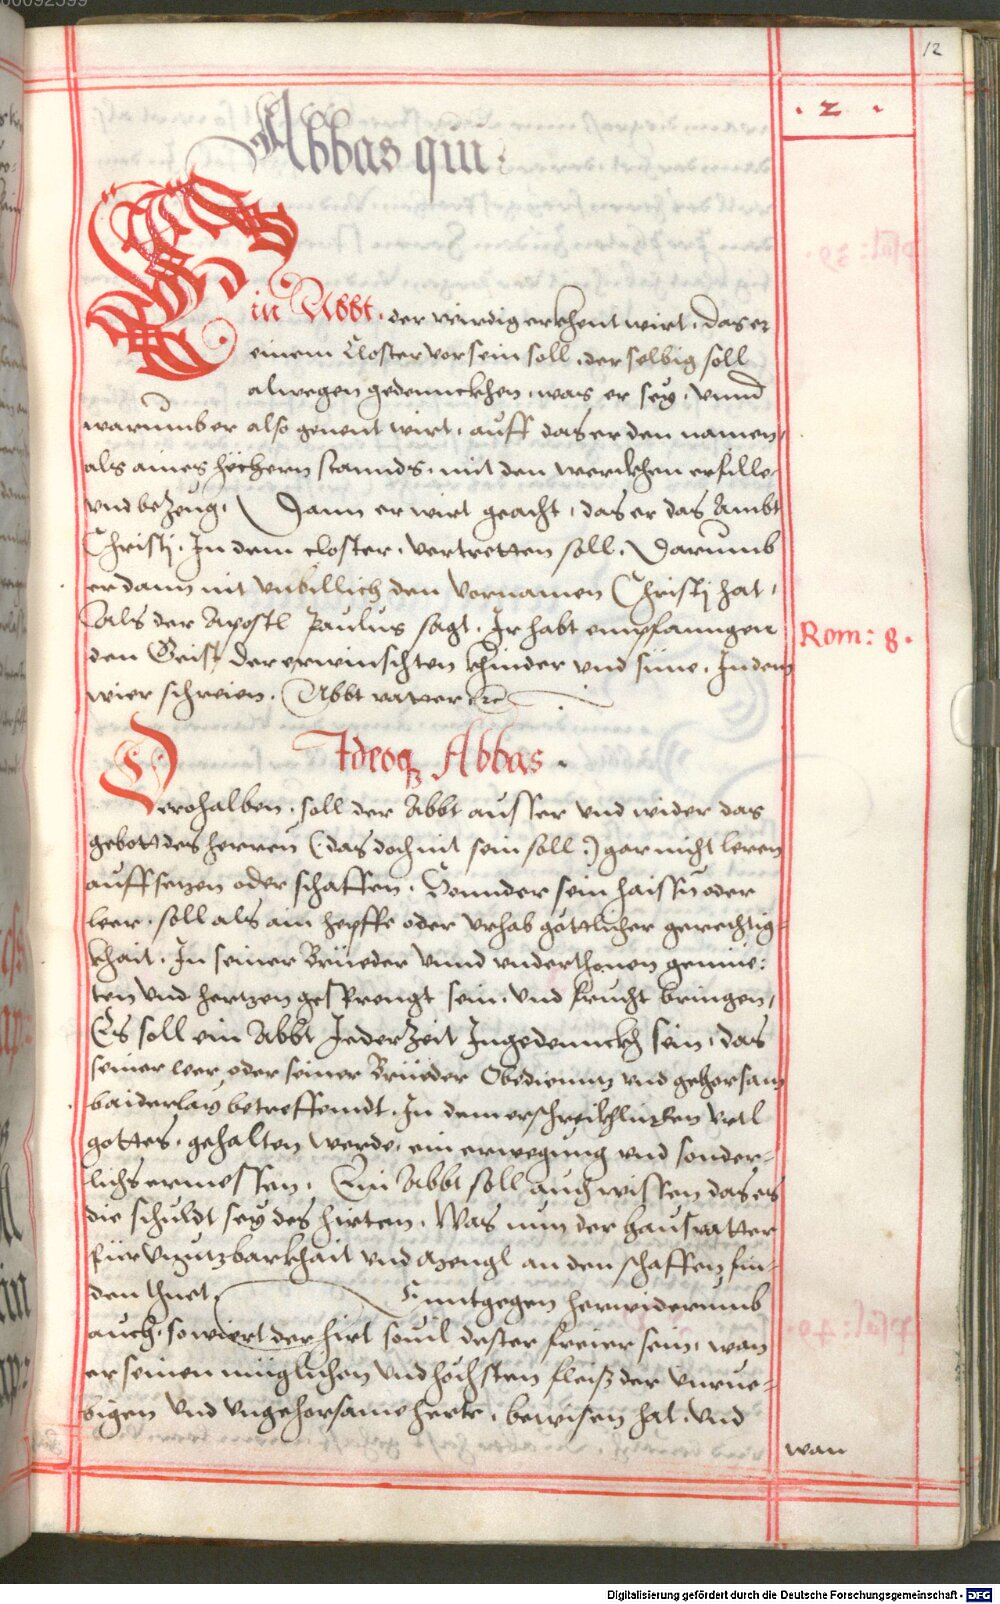 00092599
12
. 2 .
Abbas qui .
Ein Abbt . der wirdig erkhent wirt . das er
einem Closter vor sein soll . der selbig soll
alwegen gedennckhen . was er sey . Unnd
warumb er also genent wirt . auff das er den namen,
als aines höchern stannds . mit den werckhen erfille,
vnd bezeug . Dann er wirt geacht , das er das Ambt
Christj . In dem closter . vertretten soll . Darumb
er dann nit vnbillich den Vornamen Christj hat ,
Als der Apostl Paulus sagt . Ir habt empfanngen
Rom: 8 .
den Geist der erwinschten khinder vnd süne . In dem
wier schreien . Abbt vatter etc .
Ideoq Abbas .
Derohalben . soll der Abbt ausser vnd wider das
gebott des herren (das doch nit sein soll :) gar nicht leren
auffsetzen oder schaffen . Sonnder sein haissn oder
leer . soll als ain hepffe oder vrhab gottlicher gerechtig-
khait . In seiner Brüeder vnnd vnderthonen gemüe:
ten vnd hertzen gesprengt sein . vnd frucht bringen ,
Es soll ein Abbt Jederzeit Ingedennckh sein , das
seiner leer oder seiner Brüeder Obedienntz vnd gehorsam
baiderlay betreffendt . In dem erschreckhlichen vrtl
gottes . gehalten werde , ein erwegung vnd sonder-
lichs ermessen . Ein Abbt soll auch wissen das es
die schuldt sey des hirten . Was nun der hausvatter
für vnnutzbarkhait vnd mengl an den schaffen fin-
den thuet . Enntgegen herwiderumb
auch . so wiert der hirt souil dester freier sein , wan
er seinen müglichen vnd höchsten fleiß der vnrue-
bigen vnd vngehorsame herte . bewisen hat . vnd
wan
Digitalisierung gefördert durch die Deutsche Forschungsgemeinschaft - DFG